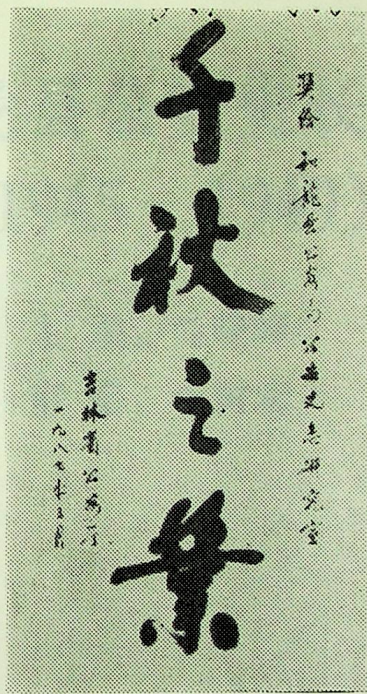 奖给 和龙县公安局公安史志研究室
千秋之業
吉林省公安厅
一九八七年五月